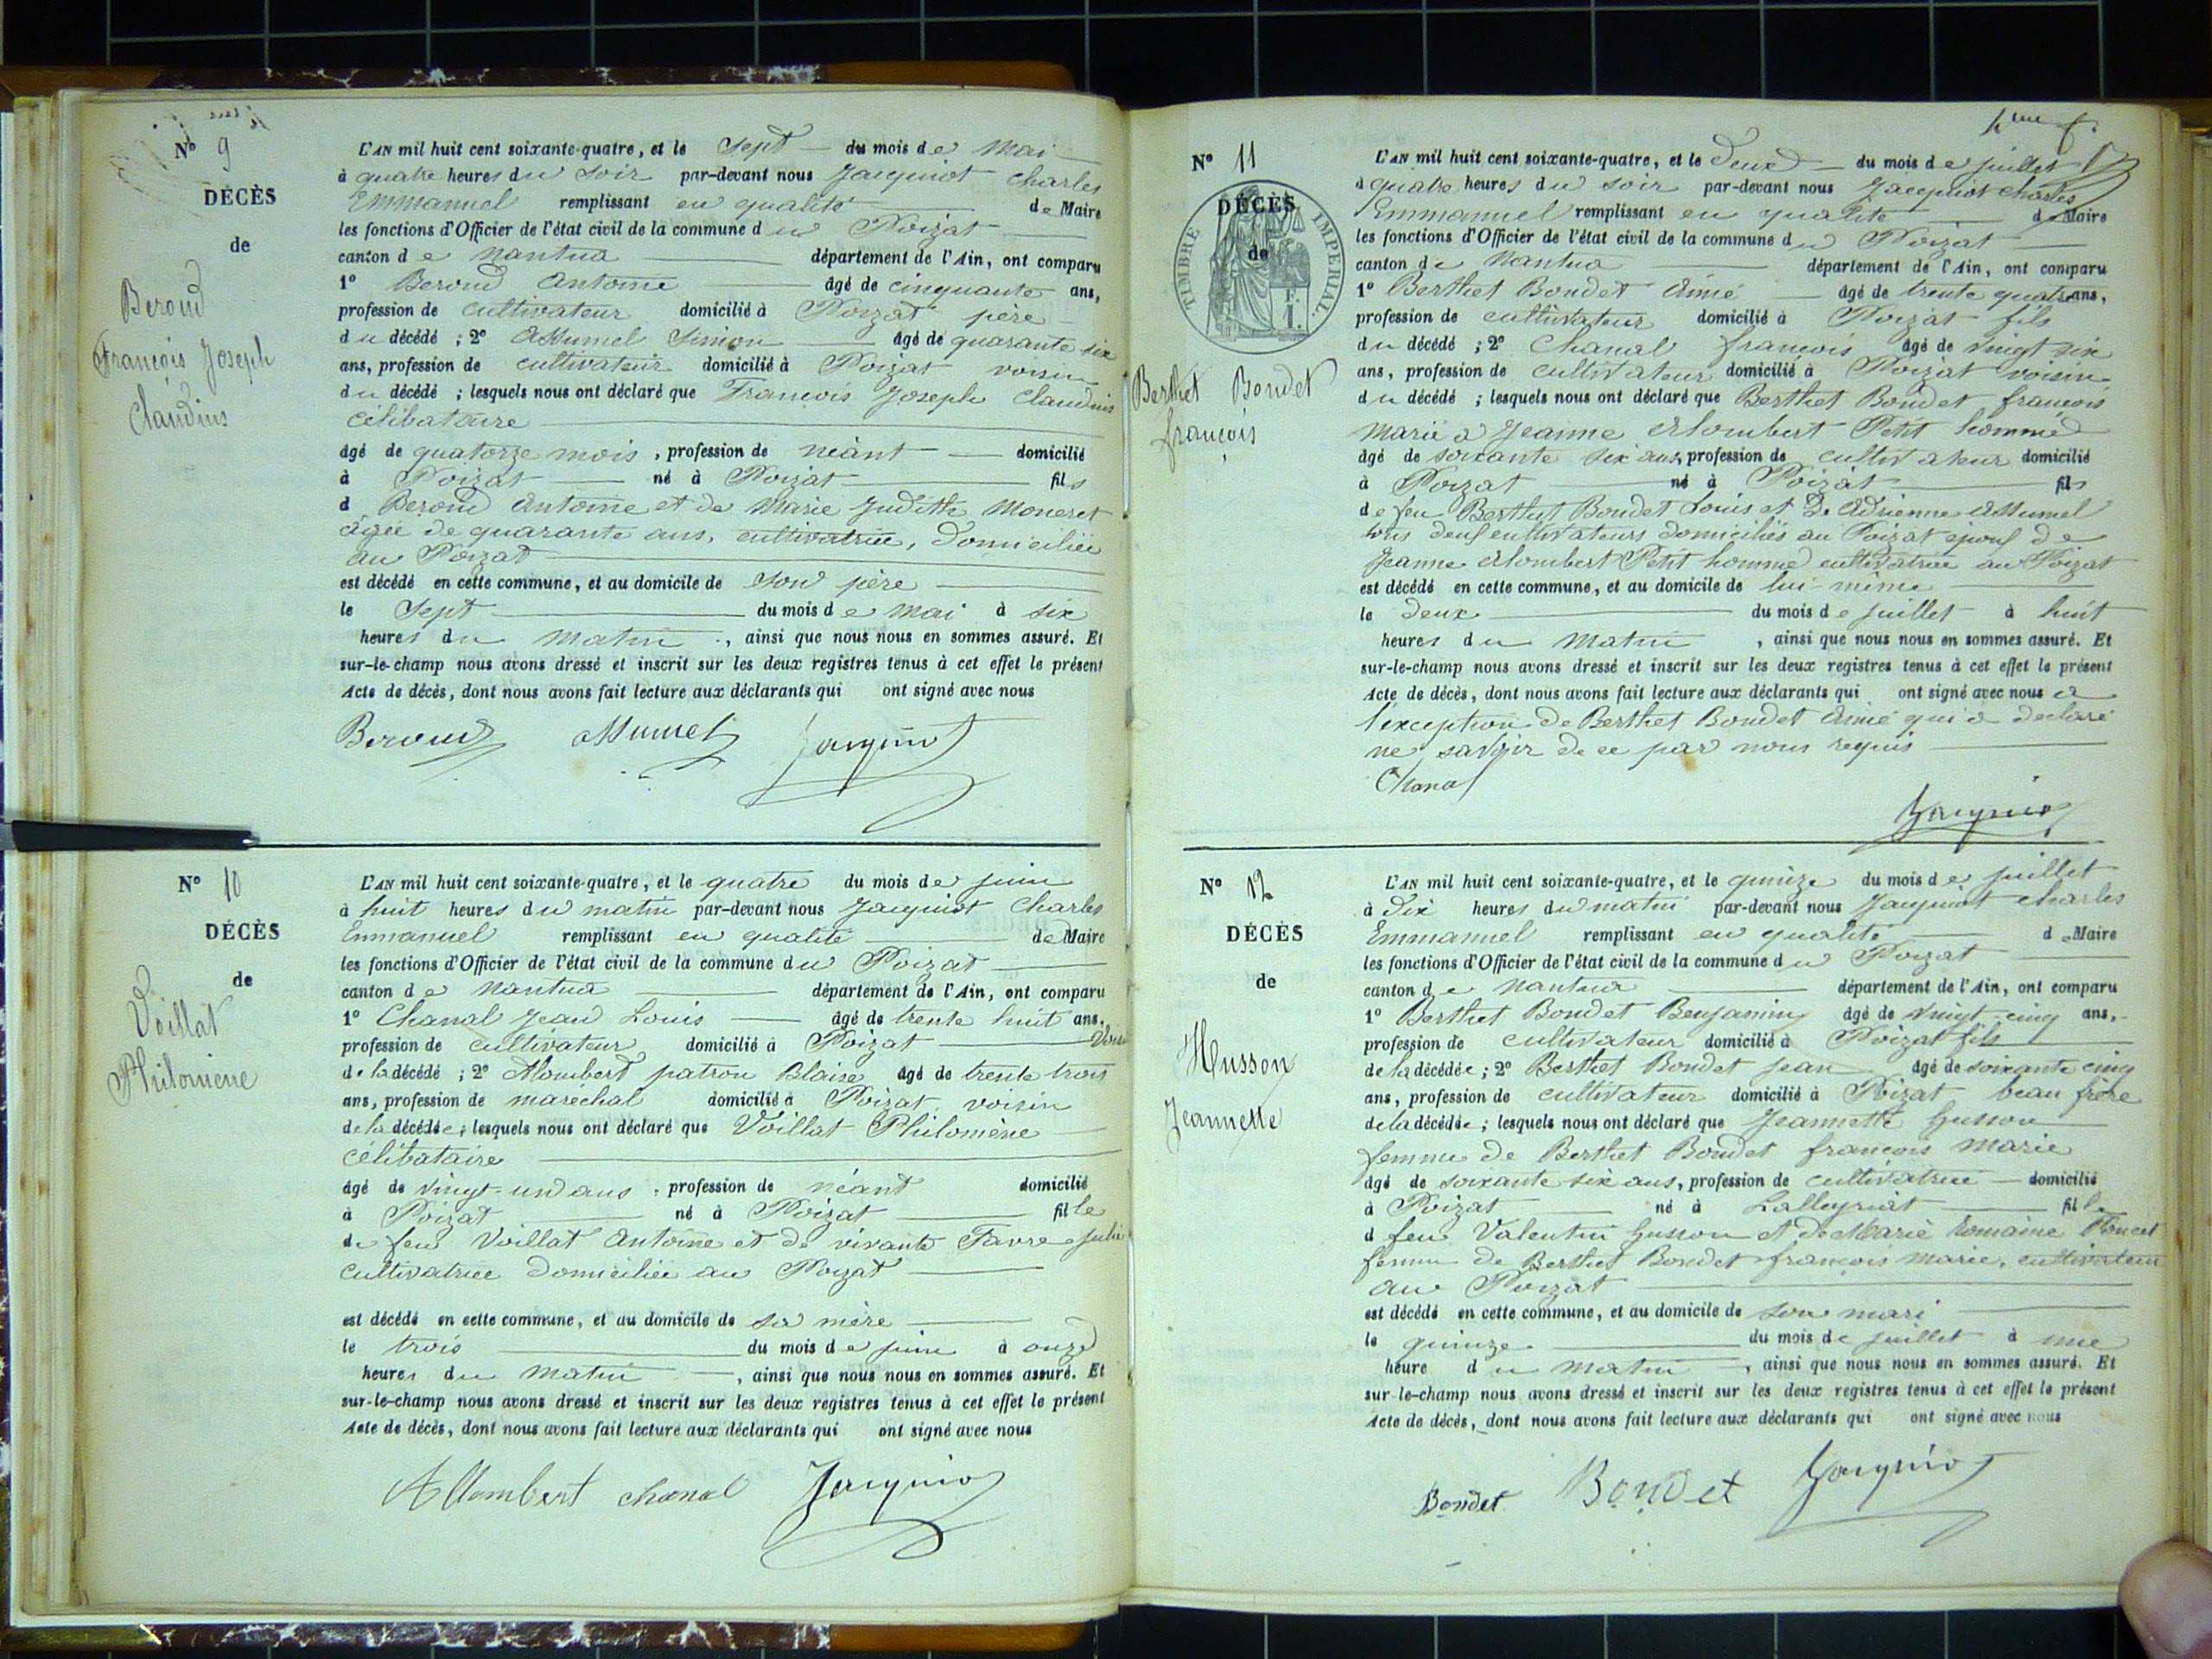 Nº 9
DÉCÈS
de
Beroud
François Joseph
Claudius
L'AN mil huit cent soixante-quatre, et le Sept du mois de Mai
à quatre heures du soir par-devant nous Jacquiot Charles
Emmanuel remplissant en qualité de Maire
les fonctions d'Officier de l'état civil de la commune du Poizat
canton de Nantua département de l'Ain, ont comparu
1º Beroud Antoine âgé de cinquante ans,
profession de cultivateur domicilié à Poizat père
du décédé ; 2º Allumel Simon âgé de quarante six
ans, profession de cultivateur domicilié à Poizat voisin
du décédé ; lesquels nous ont déclaré que François Joseph Claudius
célibataire
âgé de quatorze mois, profession de néant domicilié
à Poizat né à Poizat fils
d Beroud Antoine et de Marie Judith Moneret
âgée de quarante ans, cultivatrice, domiciliée
au Poizat
est décédé en cette commune, et au domicile de son père
le Sept du mois de Mai à six
heures du matin, ainsi que nous nous en sommes assuré. Et
sur-le-champ nous avons dressé et inscrit sur les deux registres tenus à cet effet le présent
Acte de décès, dont nous avons fait lecture aux déclarants qui ont signé avec nous
Beroud Allumel Jacquiot
Nº 10
DÉCÈS
de
Voillat
Philomène
L'AN mil huit cent soixante-quatre, et le quatre du mois de juin
à huit heures du matin par-devant nous Jacquiot Charles
Emmanuel remplissant en qualité de Maire
les fonctions d'Officier de l'état civil de la commune du Poizat
canton de Nantua département de l'Ain, ont comparu
1º Chanal Jean Louis âgé de trente huit ans,
profession de cultivateur domicilié à Poizat voisin
de la décédé ; 2º Alombert patron Blaise âgé de trente trois
ans, profession de maréchal domicilié à Poizat voisin
de la décédée ; lesquels nous ont déclaré que Voillat Philomène
célibataire
âgé de vingt-un ans, profession de néant domicilié
à Poizat né à Poizat fille
de feu Voillat Antoine et de vivante Favre Julie
cultivatrice domiciliée au Poizat
est décédé en cette commune, et au domicile de sa mère
le trois du mois de juin à onze
heures du matin, ainsi que nous nous en sommes assuré. Et
sur-le-champ nous avons dressé et inscrit sur les deux registres tenus à cet effet le présent
Acte de décès, dont nous avons fait lecture aux déclarants qui ont signé avec nous
Allombert chanal Jacquiot
Nº 11
DÉCÈS
de
TIMBRE IMPERIAL
Berthet Bondet
françois
L'AN mil huit cent soixante-quatre, et le deux du mois de juillet
à quatre heures du soir par-devant nous Jacquiot Charles
Emmanuel remplissant en qualité de Maire
les fonctions d'Officier de l'état civil de la commune du Poizat
canton de Nantua département de l'Ain, ont comparu
1º Berthet Bondet Aimé âgé de trente quatre ans,
profession de cultivateur domicilié à Poizat fils
du décédé ; 2º Chanal françois âgé de vingt six
ans, profession de cultivateur domicilié à Poizat voisin
du décédé ; lesquels nous ont déclaré que Berthet Bondet françois
marié à Jeanne Alombert Petit homme
âgé de soixante six ans, profession de cultivateur domicilié
à Poizat né à Poizat fils
de feu Berthet Bondet Louis et de Adrienne Allumel
tous deux cultivateurs domiciliés au Poizat époux de
Jeanne Alombert Petit homme cultivatrice au Poizat
est décédé en cette commune, et au domicile de lui-même
le deux du mois de juillet à huit
heures du matin, ainsi que nous nous en sommes assuré. Et
sur-le-champ nous avons dressé et inscrit sur les deux registres tenus à cet effet le présent
Acte de décès, dont nous avons fait lecture aux déclarants qui ont signé avec nous à
l'exception de Berthet Bondet Aimé qui a déclaré
ne savoir de ce par nous requis
Chanal
Jacquiot
Nº 12
DÉCÈS
de
Husson
Jeannette
L'AN mil huit cent soixante-quatre, et le quinze du mois de juillet
à dix heures du matin par-devant nous Jacquiot Charles
Emmanuel remplissant en qualité de Maire
les fonctions d'Officier de l'état civil de la commune du Poizat
canton de Nantua département de l'Ain, ont comparu
1º Berthet Bondet Benjamin âgé de vingt-cinq ans,
profession de cultivateur domicilié à Poizat fils
de la décédée ; 2º Berthet Bondet Jean âgé de soixante cinq
ans, profession de cultivateur domicilié à Poizat beau frère
de la décédée ; lesquels nous ont déclaré que Jeannette husson
femme de Berthet Bondet françois Marie
âgé de soixante six ans, profession de cultivatrice domicilié
à Poizat né à Lalleyriat fille
d feu Valentin husson et de Marie Romaine Poncet
femme de Berthet Bondet françois Marie, cultivateur
au Poizat
est décédé en cette commune, et au domicile de son mari
le quinze du mois de juillet à une
heure du matin, ainsi que nous nous en sommes assuré. Et
sur-le-champ nous avons dressé et inscrit sur les deux registres tenus à cet effet le présent
Acte de décès, dont nous avons fait lecture aux déclarants qui ont signé avec nous
Bondet Bondet Jacquiot